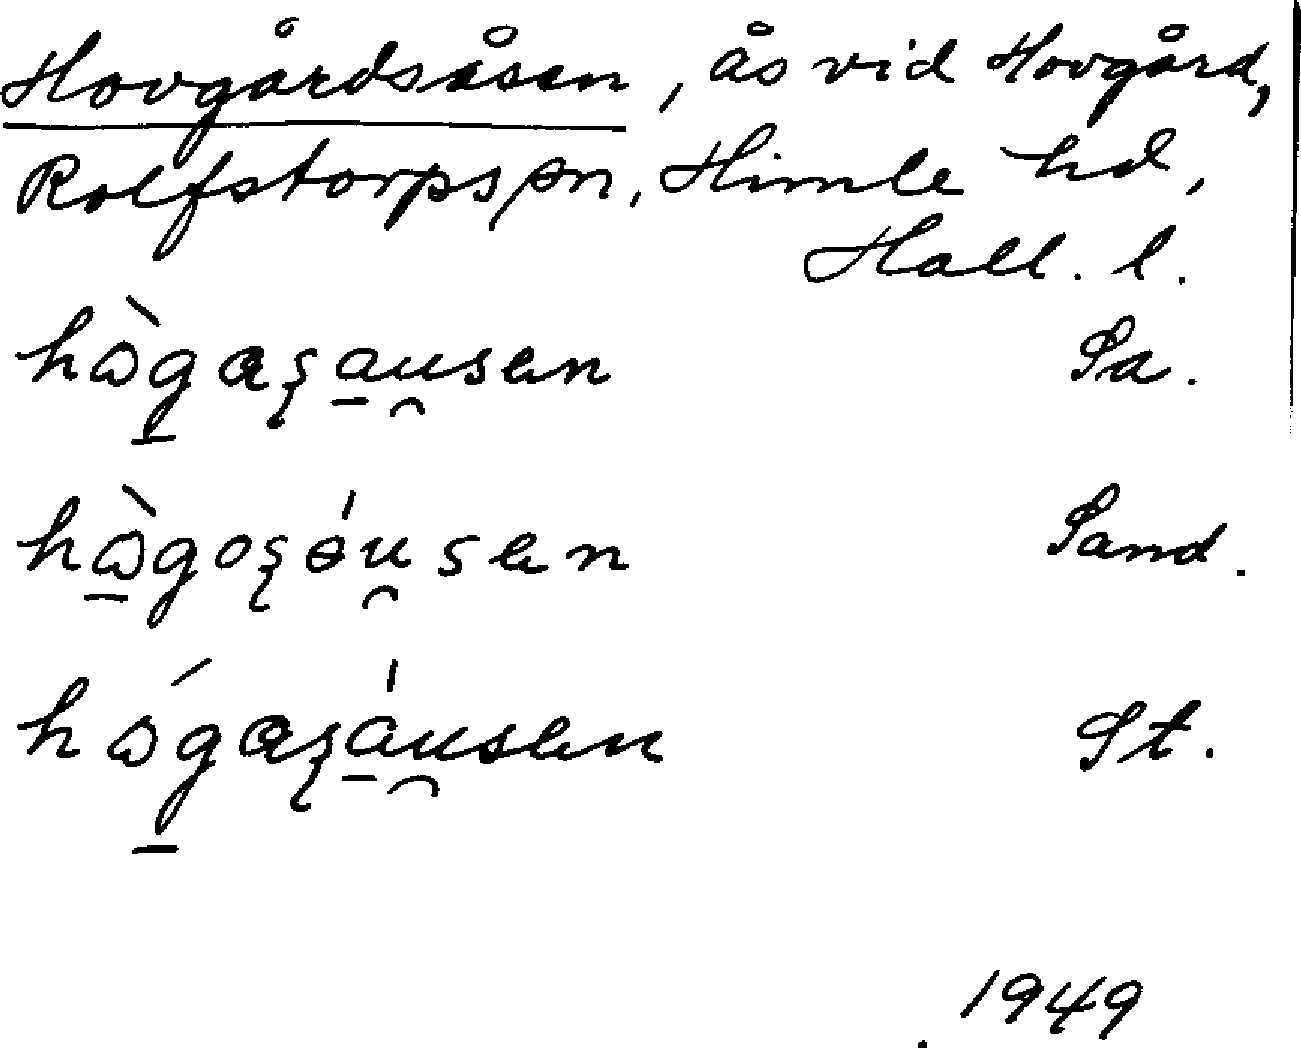 Hovgårdsåsen, ås vid Hovgård,
Rolfstorps sn, Himle hd,
Hall. l.
Sa.
Sand.
St.
1949